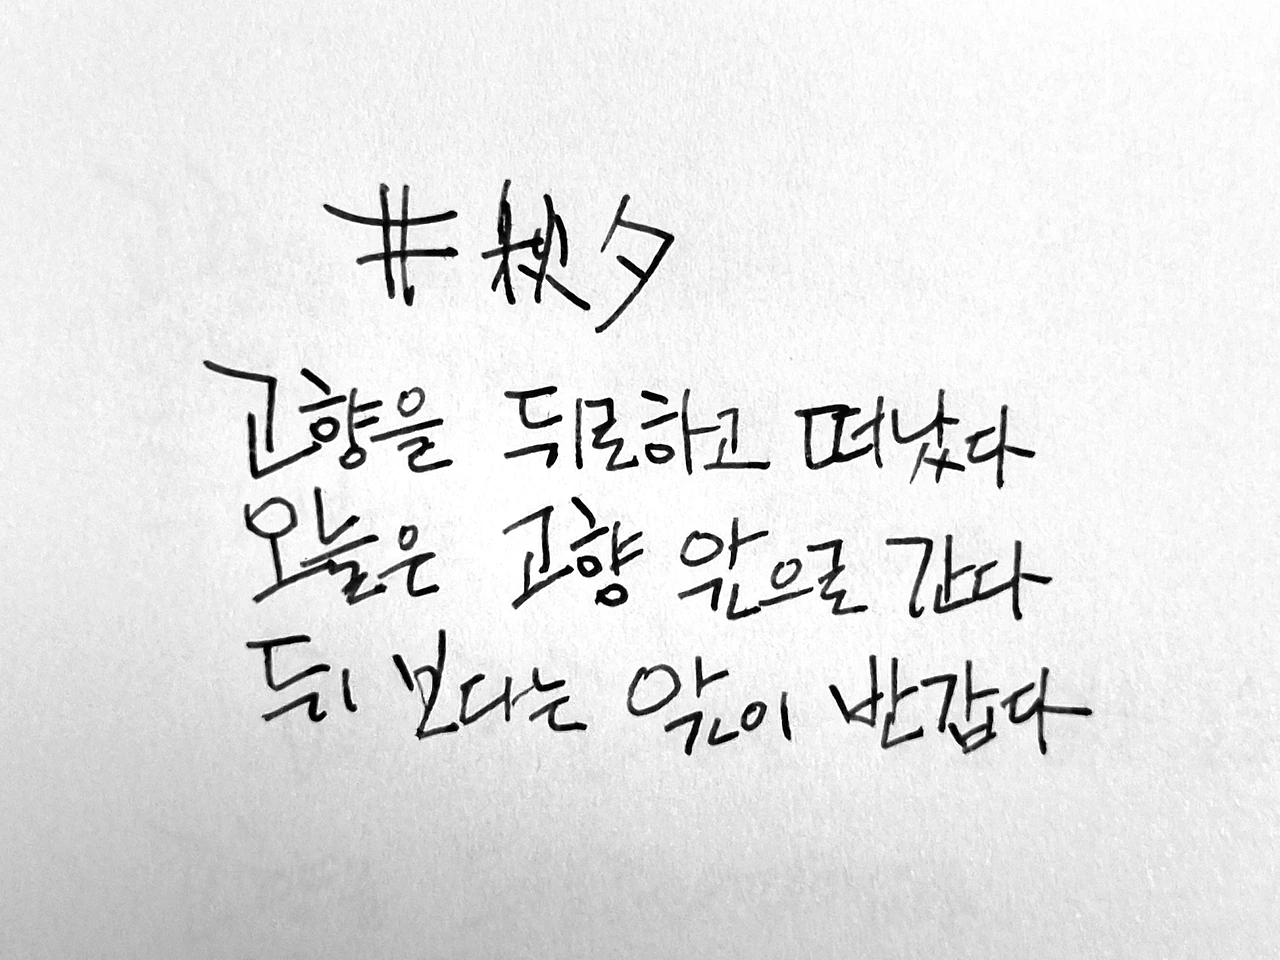 #秋夕
고향을 뒤로하고 떠났다
오늘은 고향 앞으로 간다
뒤 보다는 앞이 반갑다